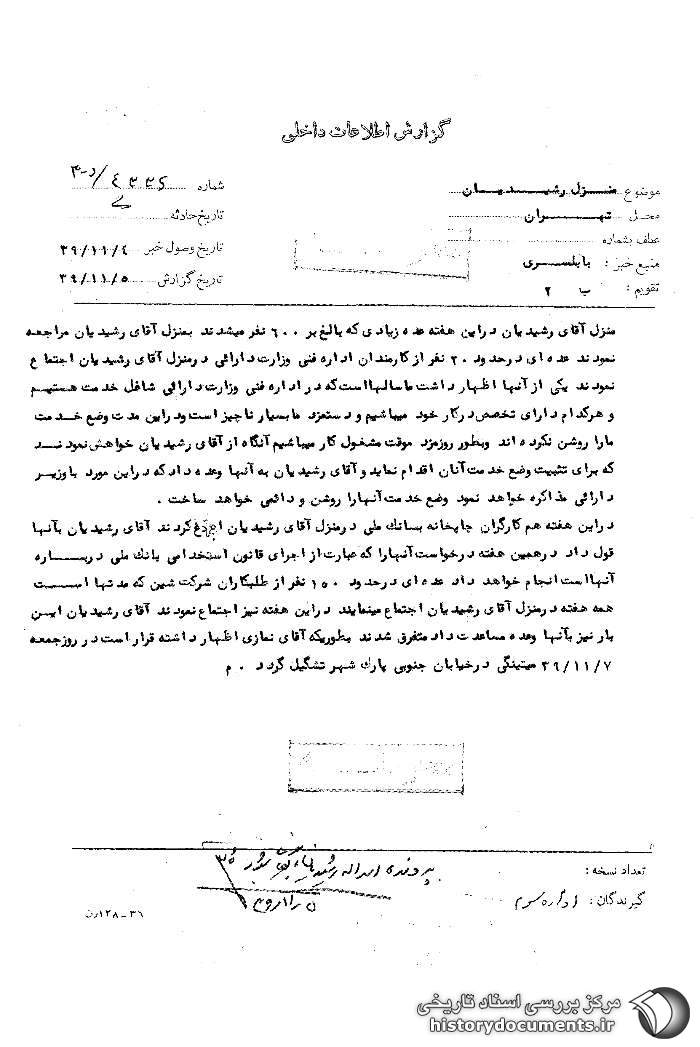 گزارش اطلاعات داخلی
موضوع منزل رشیدیان
محل تهران
عطف بشماره
منبع خبر : بابلسری
تقویم : ب ۲
شماره ۴۳۳۵/د-۳
تاریخ حادثه
تاریخ وصول خبر ۳۹/۱۱/۴
تاریخ گزارش ۳۹/۱۱/۵
منزل آقای رشیدیان دراین هفته عده زیادی که بالغ بر ۶۰۰ نفر میشدند بمنزل آقای رشیدیان مراجعه
نمودند عده ای درحدود ۲۰ نفر از کارمندان اداره فنی وزارت دارائی درمنزل آقای رشیدیان اجتماع
نمودند یکی از آنها اظهار داشت ماسالهااست که در اداره فنی وزارت دارائی شاغل خدمت هستیم
و هرکدام دارای تخصص درکار خود میباشیم و دستمزد مابسیار ناچیز است ودراین مدت وضع خدمت
مارا روشن نکرده اند وبطور روزمزد موقت مشغول کار میباشیم آنگاه از آقای رشیدیان خواهش نمودند
که برای تثبیت وضع خدمت آنان اقدام نماید و آقای رشیدیان به آنها وعده داد که دراین مورد باوزیر
دارائی مذاکره خواهد نمود وضع خدمت آنهارا روشن و دائمی خواهد ساخت .
دراین هفته هم کارگران چاپخانه بانک ملی درمنزل آقای رشیدیان کردند آقای رشیدیان بآنها
قول داد درهمین هفته درخواست آنهارا که عبارت از اجرای قانون استخدامی بانک ملی درباره
آنهااست انجام خواهد داد عده ای درحدود ۱۵۰ نفر از طلبکاران شرکت شین که مدتها است
همه هفته درمنزل آقای رشیدیان اجتماع مینمایند دراین هفته نیز اجتماع نمودند آقای رشیدیان این
بار نیز بآنها وعده مساعدت داد متفرق شدند بطوریکه آقای نمازی اظهار داشته قرار است در روزجمعه
۳۹/۱۱/۷ میتینگی درخیابان جنوبی پارک شهر تشکیل گردد . م
تعداد نسخه :
گیرندگان : اداره سوم
پرونده اسداله
۳۶-۱۲۸
مرکز بررسی اسناد تاریخی
historydocuments.ir